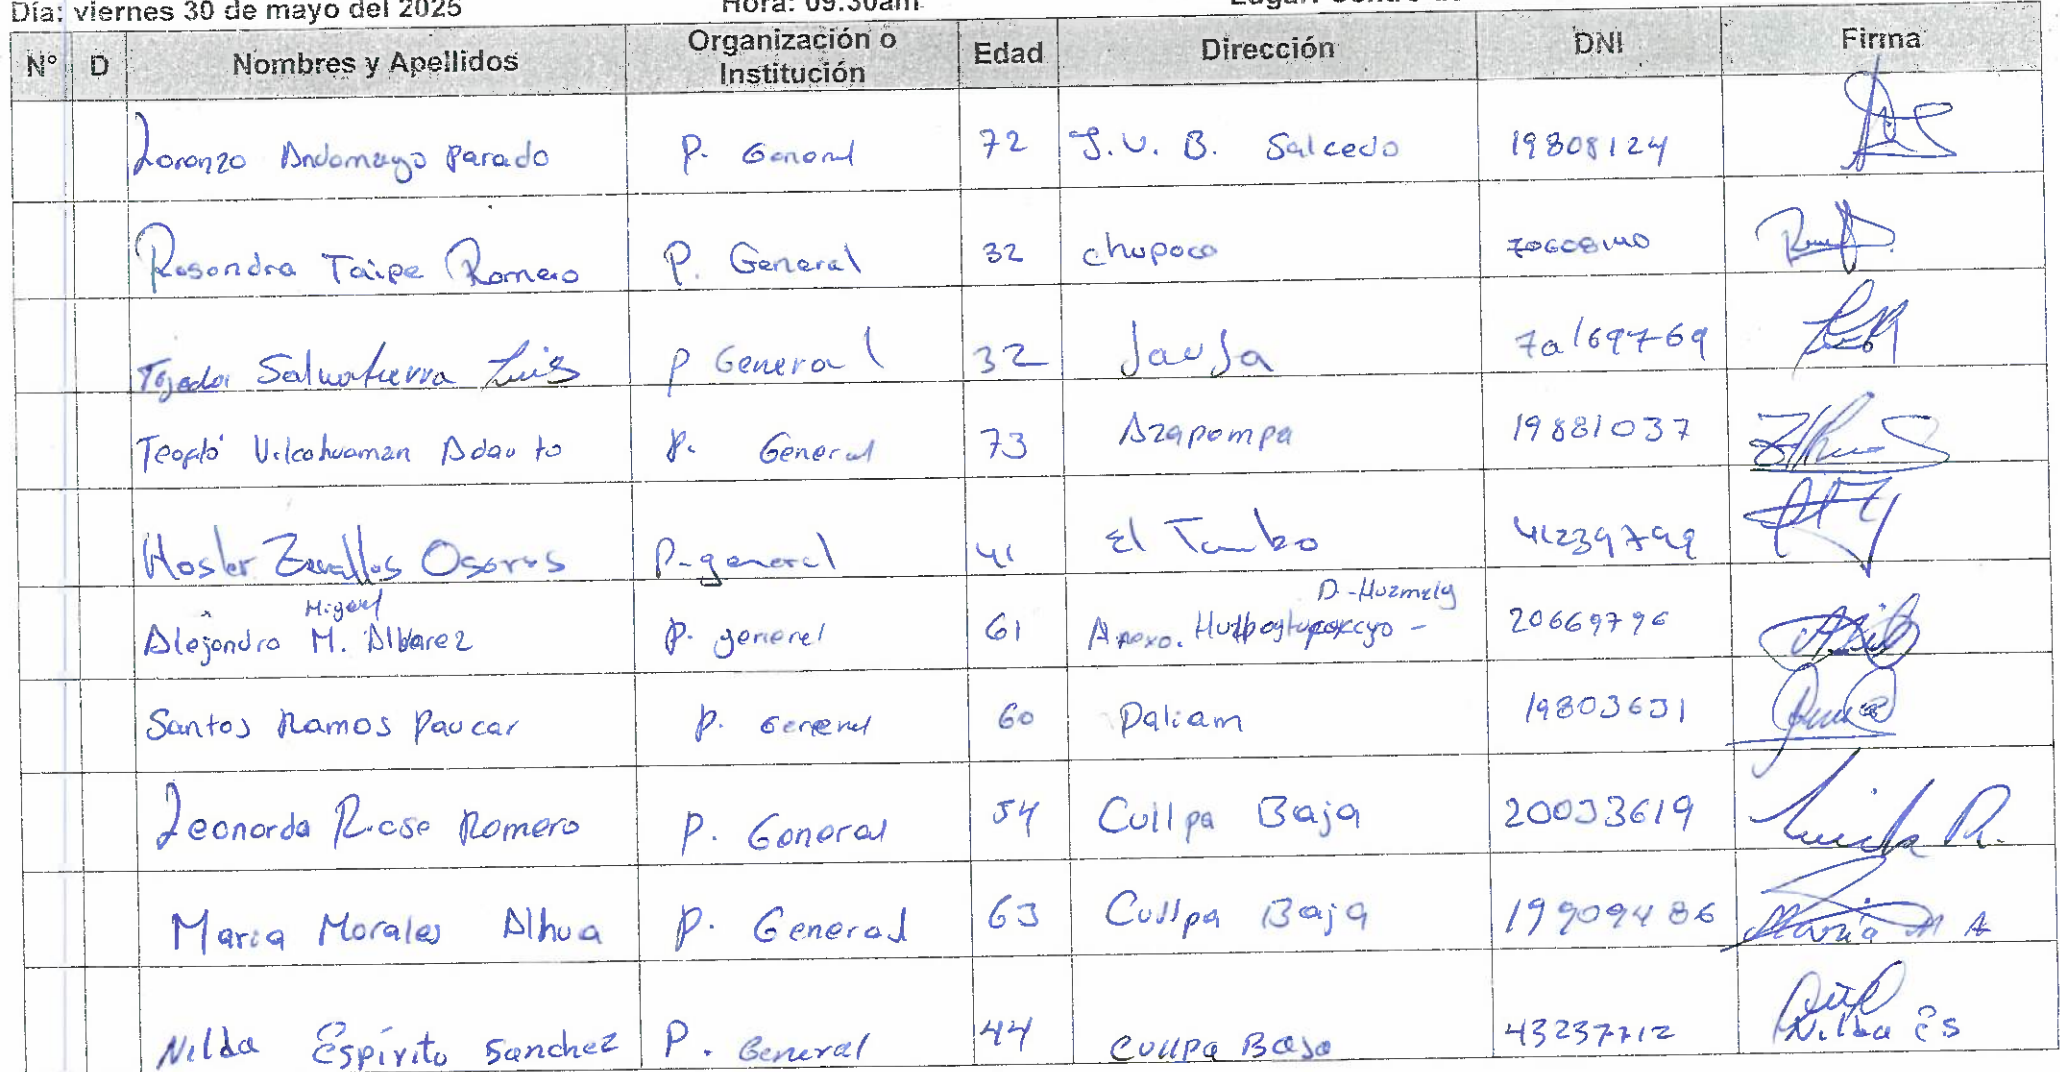 Día: viernes 30 de mayo del 2025 Hora: 09:30am Lugar: Centro
N° D Nombres y Apellidos Organización o Institución Edad Dirección DNI Firma
Loronzo Andamayo Parado P. General 72 J.V. B. Salcedo 19808124
Rosandra Taipe Romero P. General 32 chupaca
Tejada Salvatierra Luis P General 32 Jauja 70169769
Teofilo Vilcahuaman Adauto P. General 73 Azapampa 19881037
Hosler Zevallos Osores P-general 41 El Tambo 41239799
Miguel D-Huamaly
Alejandro M. Albarez P. general 61 Anexo. 20669796
Santos Ramos Paucar P. General 60 Paliam 19803631
Leonarda Rose Romero P. General 54 Cullpa Baja 20033619
Maria Morales Alhua P. General 63 Cullpa Baja 19909486 Maria M A
Nilda Espirito Sanchez P. General 44 Cullpa Baja 43237712 Nilda ES